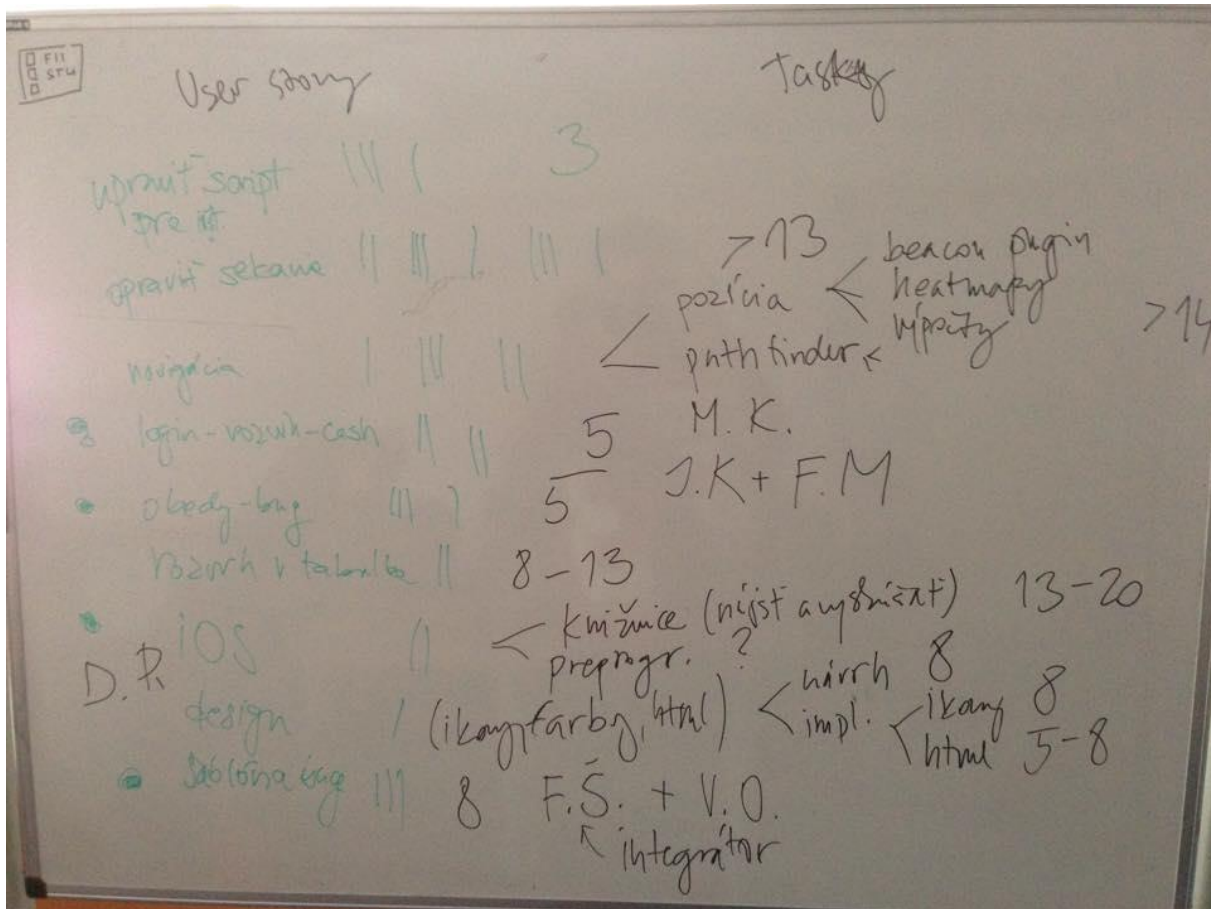 FIIT STU
User story Tasky
upraviť script 3
pre
opraviť sekanie >13
pozícia beacon plugin
heatmapy
navigácia pathfinder výpočty >14
login-rozvrh-cash 5 M.K.
obedy-bug 5 J.K + F.M
rozvrh v 8-13
iOS knižnice (nájsť a vyskúšať) 13-20
preprogr. ?
D.P.
design (ikony, farby, html) návrh 8
impl. ikony 8
html 5-8
šablóna 8 F.Š. + V.O.
integrátor